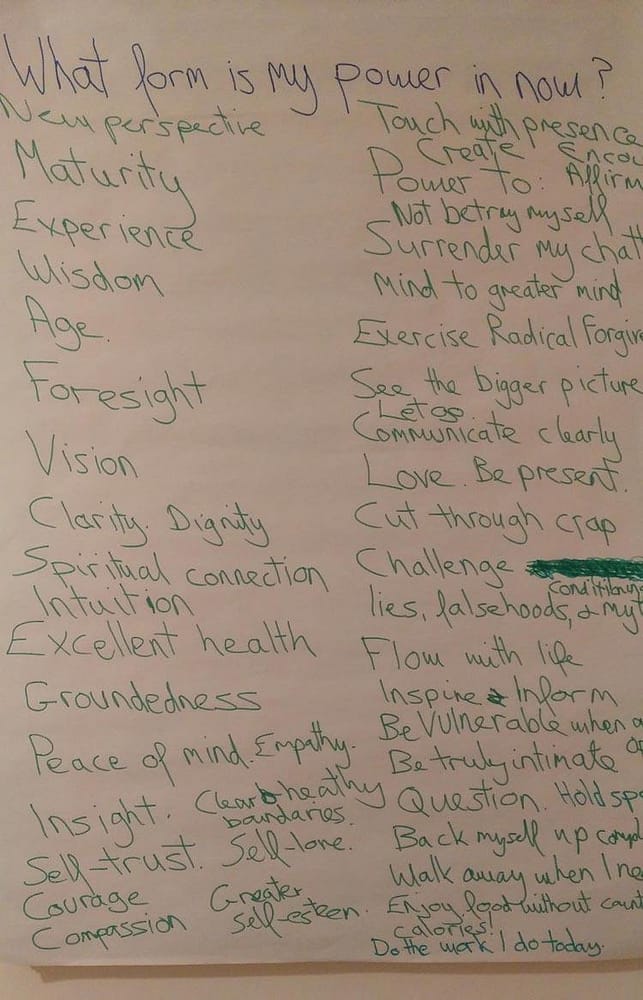 What form is my power in now?
New perspective
Maturity
Experience
Wisdom
Age.
Foresight
Vision
Clarity. Dignity
Spiritual connection
Intuition
Excellent health
Groundedness
Peace of mind. Empathy.
Insight. Clear & heathy
boundaries.
Self-trust. Self-love.
Courage Greater
Compassion self-esteen.
Touch with presence
Create Encou
Power to: Affirm
Not betray myself
Surrender my chatt
Mind to greater mind
Exercise Radical Forgive
See the bigger picture
Let go.
Communicate clearly
Love. Be present.
Cut through crap
Challenge
conditioning
lies, falsehoods, & myt
Flow with life
Inspire & Inform
Be Vulnerable when
Be truly intimate
Question. Hold spa
Back myself up
Walk away when I ne
Enjoy food without count
calories!
Do the work I do today.